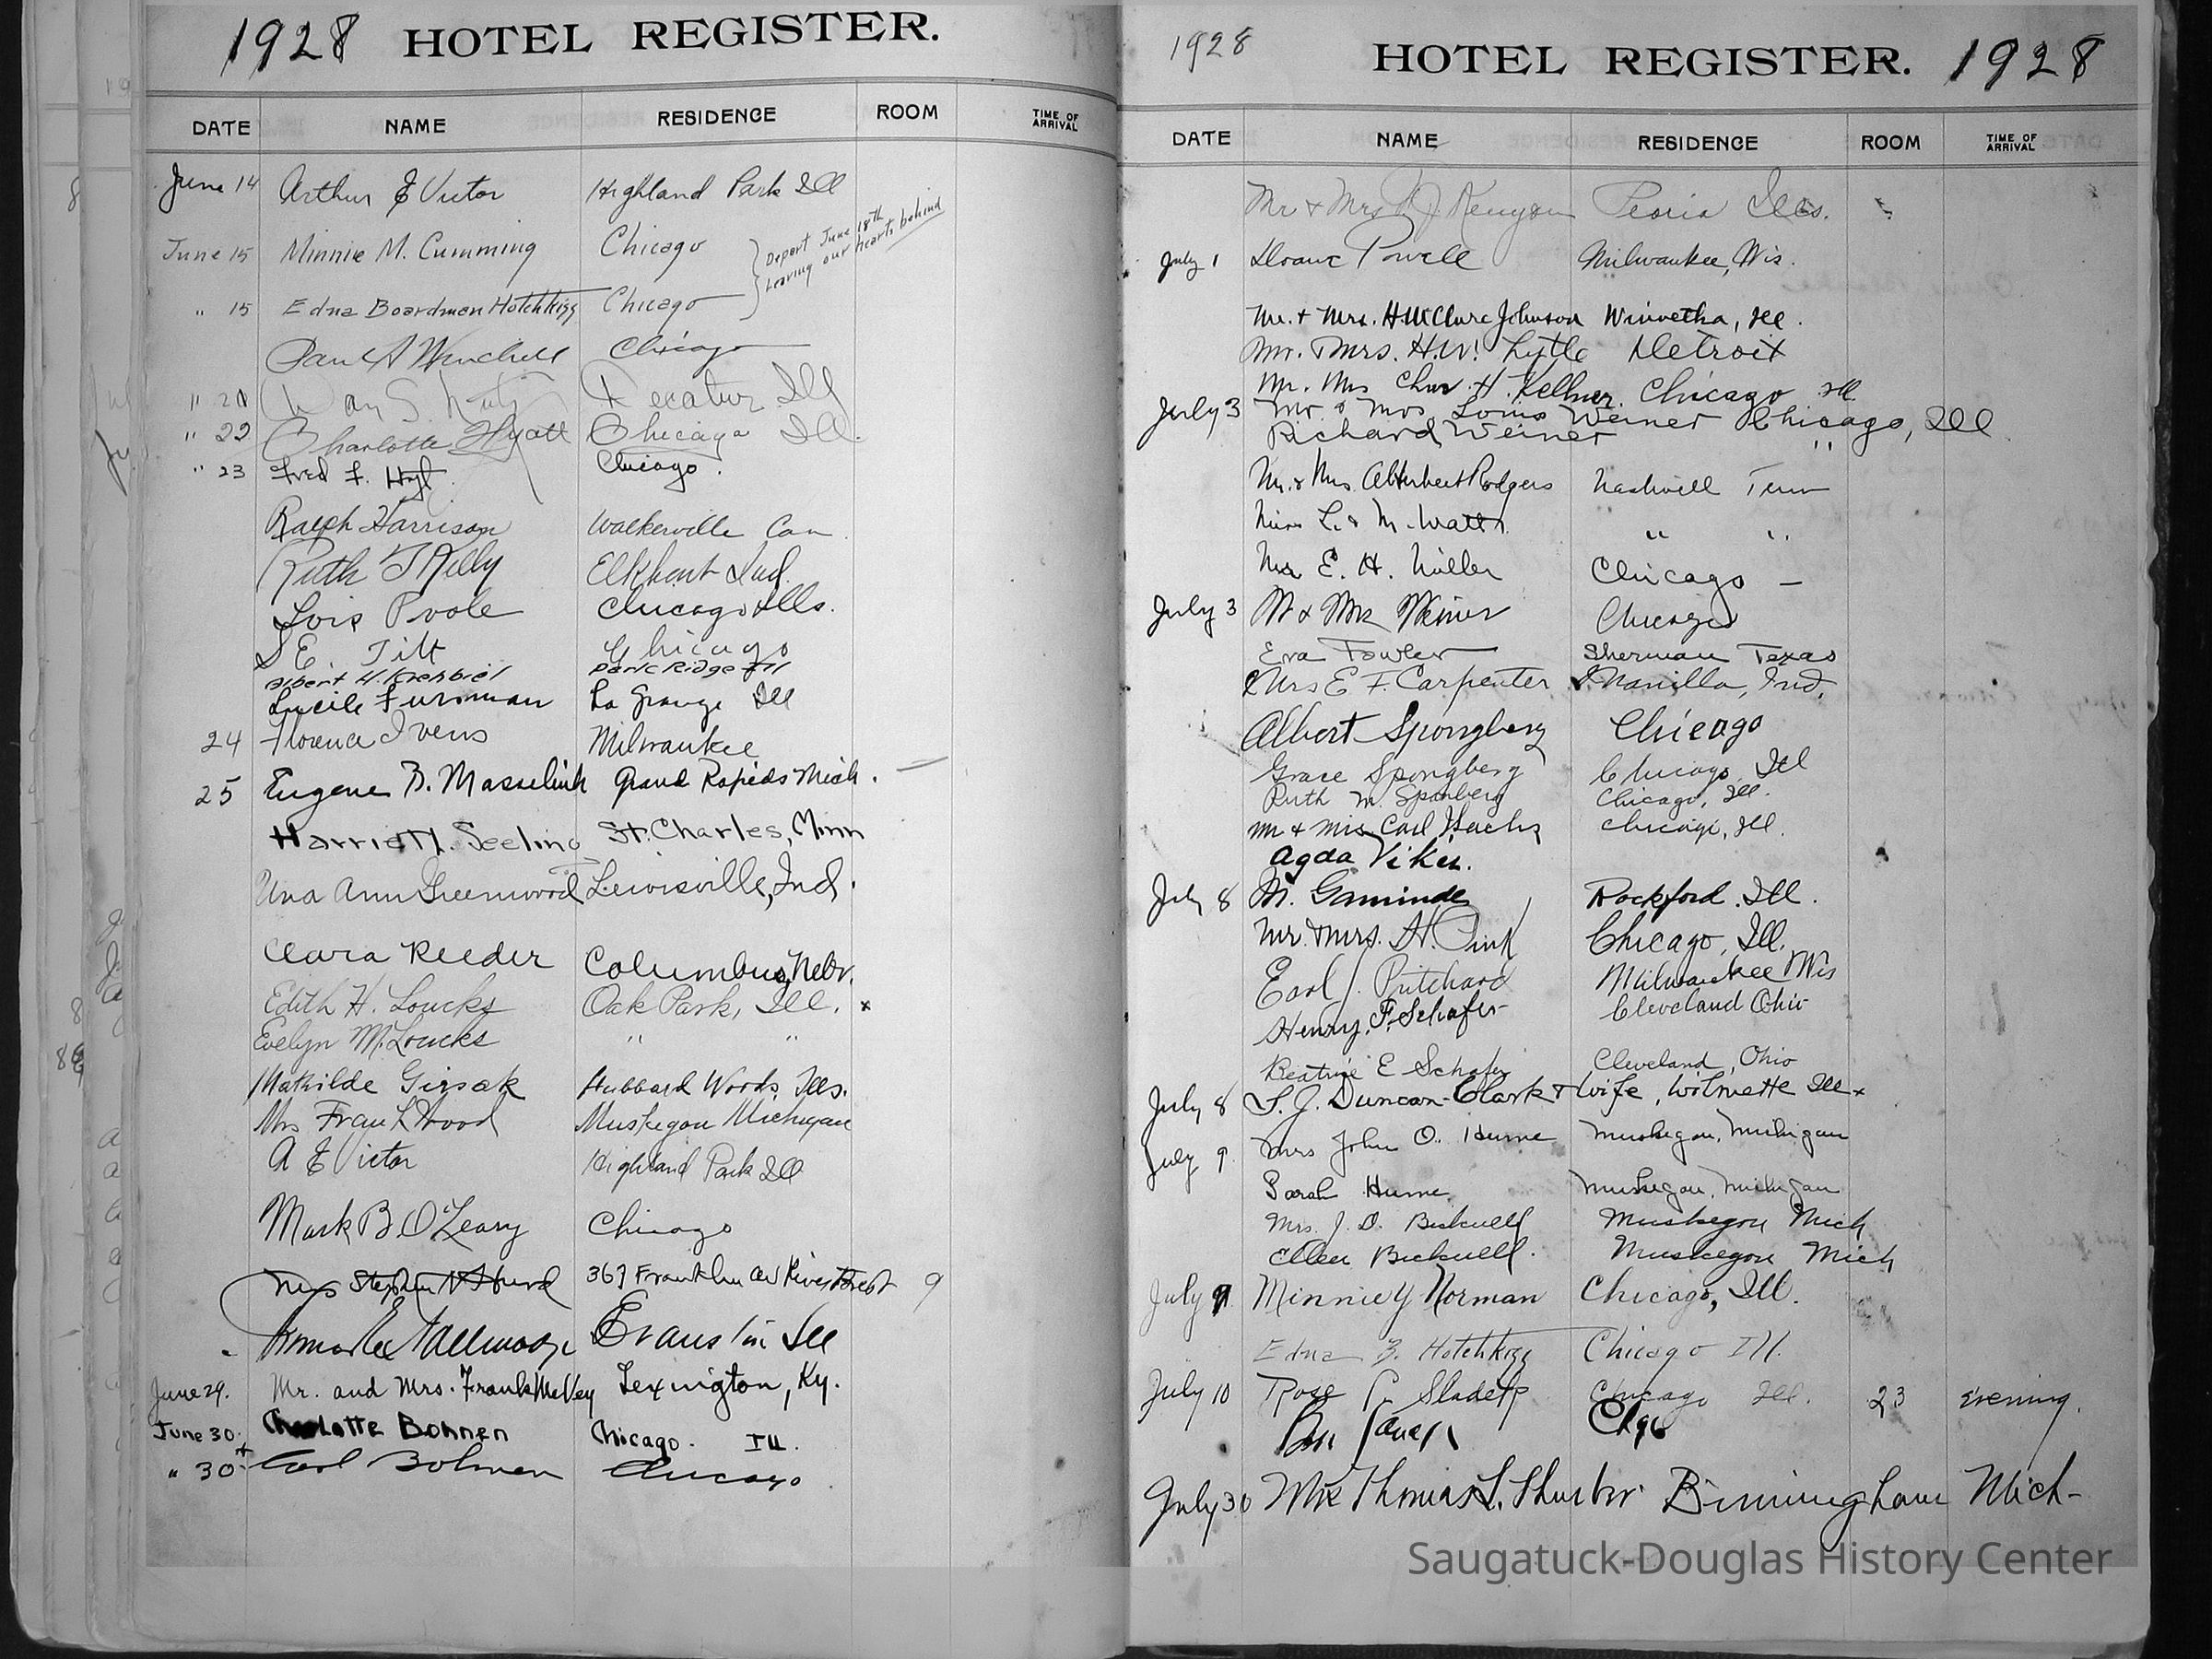 1928 HOTEL REGISTER.
DATE NAME RESIDENCE ROOM TIME OF ARRIVAL
June 14 Arthur E Victor Highland Park Ill
June 15 Minnie M. Cumming Chicago
Depart June 18th
leaving our hearts behind
" 15 Edna Boardman Hotchkiss Chicago
Paul A Winchell Chicago
" 20 Decatur Ill
" 22 Charlotte Hyatt Chicago Ill.
" 23 Fred F. Chicago.
Ralph Harrison Walkerville Can
Ruth T Kelly Elkhart Ind.
Lois Poole Chicago Ills.
S E. Tilt Chicago
Albert H. Krehbiel Park Ridge Ill
Lucile Fursman La Grange Ill
24 Florence Ivens Milwaukee
25 Eugene B. Masselink Grand Rapids Mich.
Harriet M. Seeling St. Charles, Minn
Una Ann Greenwood Lewisville, Ind.
Clara Reeder Columbus, Nebr.
Edith H. Loucks Oak Park, Ill. x
Evelyn M. Loucks " "
Mathilde Hubbard Woods, Ills.
Mrs Frank Wood Muskegon Michigan
A E Victor Highland Park Ill
Mark B. O'Leary Chicago
Mrs Stephen Hurd 367 Franklin Av River Forest 9
Evanston Ill
June 29. Mr. and Mrs. Frank McVey Lexington, Ky.
June 30. Charlotte Bohnen Chicago. Ill.
" 30 Carl Bohnen Chicago
1928 HOTEL REGISTER. 1928
DATE NAME RESIDENCE ROOM TIME OF ARRIVAL
Mr & Mrs Kenyon Peoria Ills.
July 1 Powell Milwaukee, Wis.
Mr. & Mrs. H. McClure Johnson Winnetka, Ill.
Mr. & Mrs. H.W. Lytle Detroit
Mr. Mrs Chas. H. Kellner Chicago Ill
July 3 Mr. & Mrs Louis Weiner Chicago, Ill
Richard Weiner "
Mr. & Mrs. Rodgers Nashville Tenn
L. & M. Watts " "
E. H. Miller Chicago —
July 3 Mr & Mrs Chicago
Eva Fowler Sherman Texas
Mrs E. F. Carpenter Manilla, Ind.
Albert Spongberg Chicago
Grace Spongberg Chicago, Ill
Ruth M. Sponberg Chicago, Ill.
Mr & Mrs Carl Chicago, Ill.
Agda
July 8 M. Gaminde Rockford. Ill.
Mr. & Mrs. H. Pink Chicago, Ill.
Earl J. Pritchard Milwaukee Wis
Henry. F. Schafer Cleveland Ohio
Beatrice E Schafer Cleveland, Ohio
July 8 S. J. Duncan-Clark & Wife, Wilmette Ill x
July 9 Mrs John O. Hume Muskegon, Michigan
Sarah Hume Muskegon, Michigan
Mrs. J. D. Bicknell Muskegon Mich
Ellen Bicknell. Muskegon Mich
July 9 Minnie Y Norman Chicago, Ill.
Edna B. Hotchkiss Chicago Ill.
July 10 Rose Chicago Ill. 23 evening.
Chgo
July 30 Mrs Thomas L. Birmingham Mich-
Saugatuck-Douglas History Center